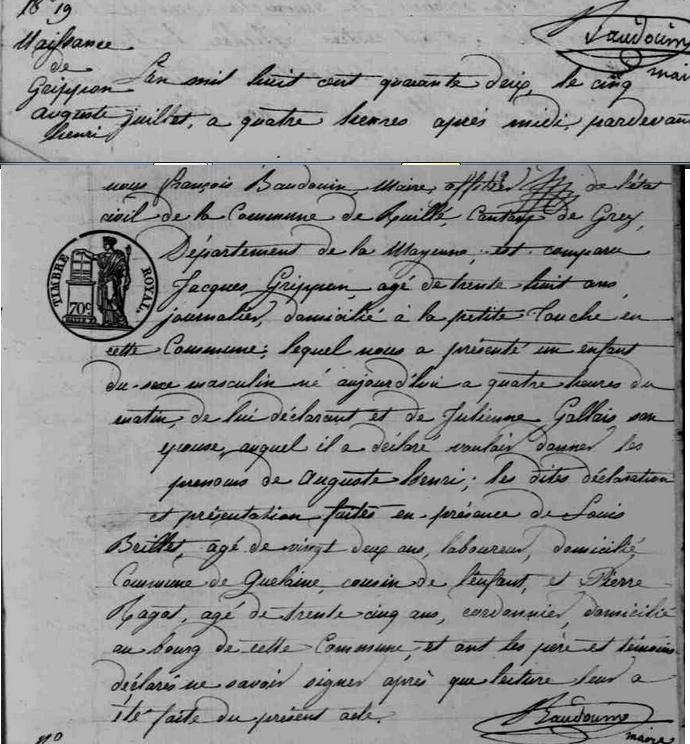 19
Naissance
de
Grippon
auguste
henri
Baudouin
maire
L'an mil huit cent quarante deux, le cinq
juillet, a quatre heures après midi, pardevant
nous françois Baudouin, Maire, officier de l'état
civil de la Commune de Ruillé, Canton de Grez,
Département de la Mayenne, est comparu
Jacques Grippon, agé de trente huit ans,
journalier, domicilié à la petite Touche en
cette Commune; lequel nous a présenté un enfant
du sexe masculin né aujourd'hui a quatre heures du
matin, de lui déclarant et de Julienne Gallais son
épouse, auquel il a déclaré vouloir donner les
prenoms de Auguste henri; les dites déclaration
et présentation faites en présence de Louis
Brillet, agé de vingt deux ans, laboureur, domicilié
Commune de Quelaine, cousin de l'enfant, et Pierre
Ragot, agé de trente cinq ans, cordonnier, domicilié
au bourg de cette Commune, et ont les père et témoins
déclarés ne savoir signer après que lecture leur a
été faite du présent acte.
Baudouin
maire
TIMBRE ROYAL.
70c
No